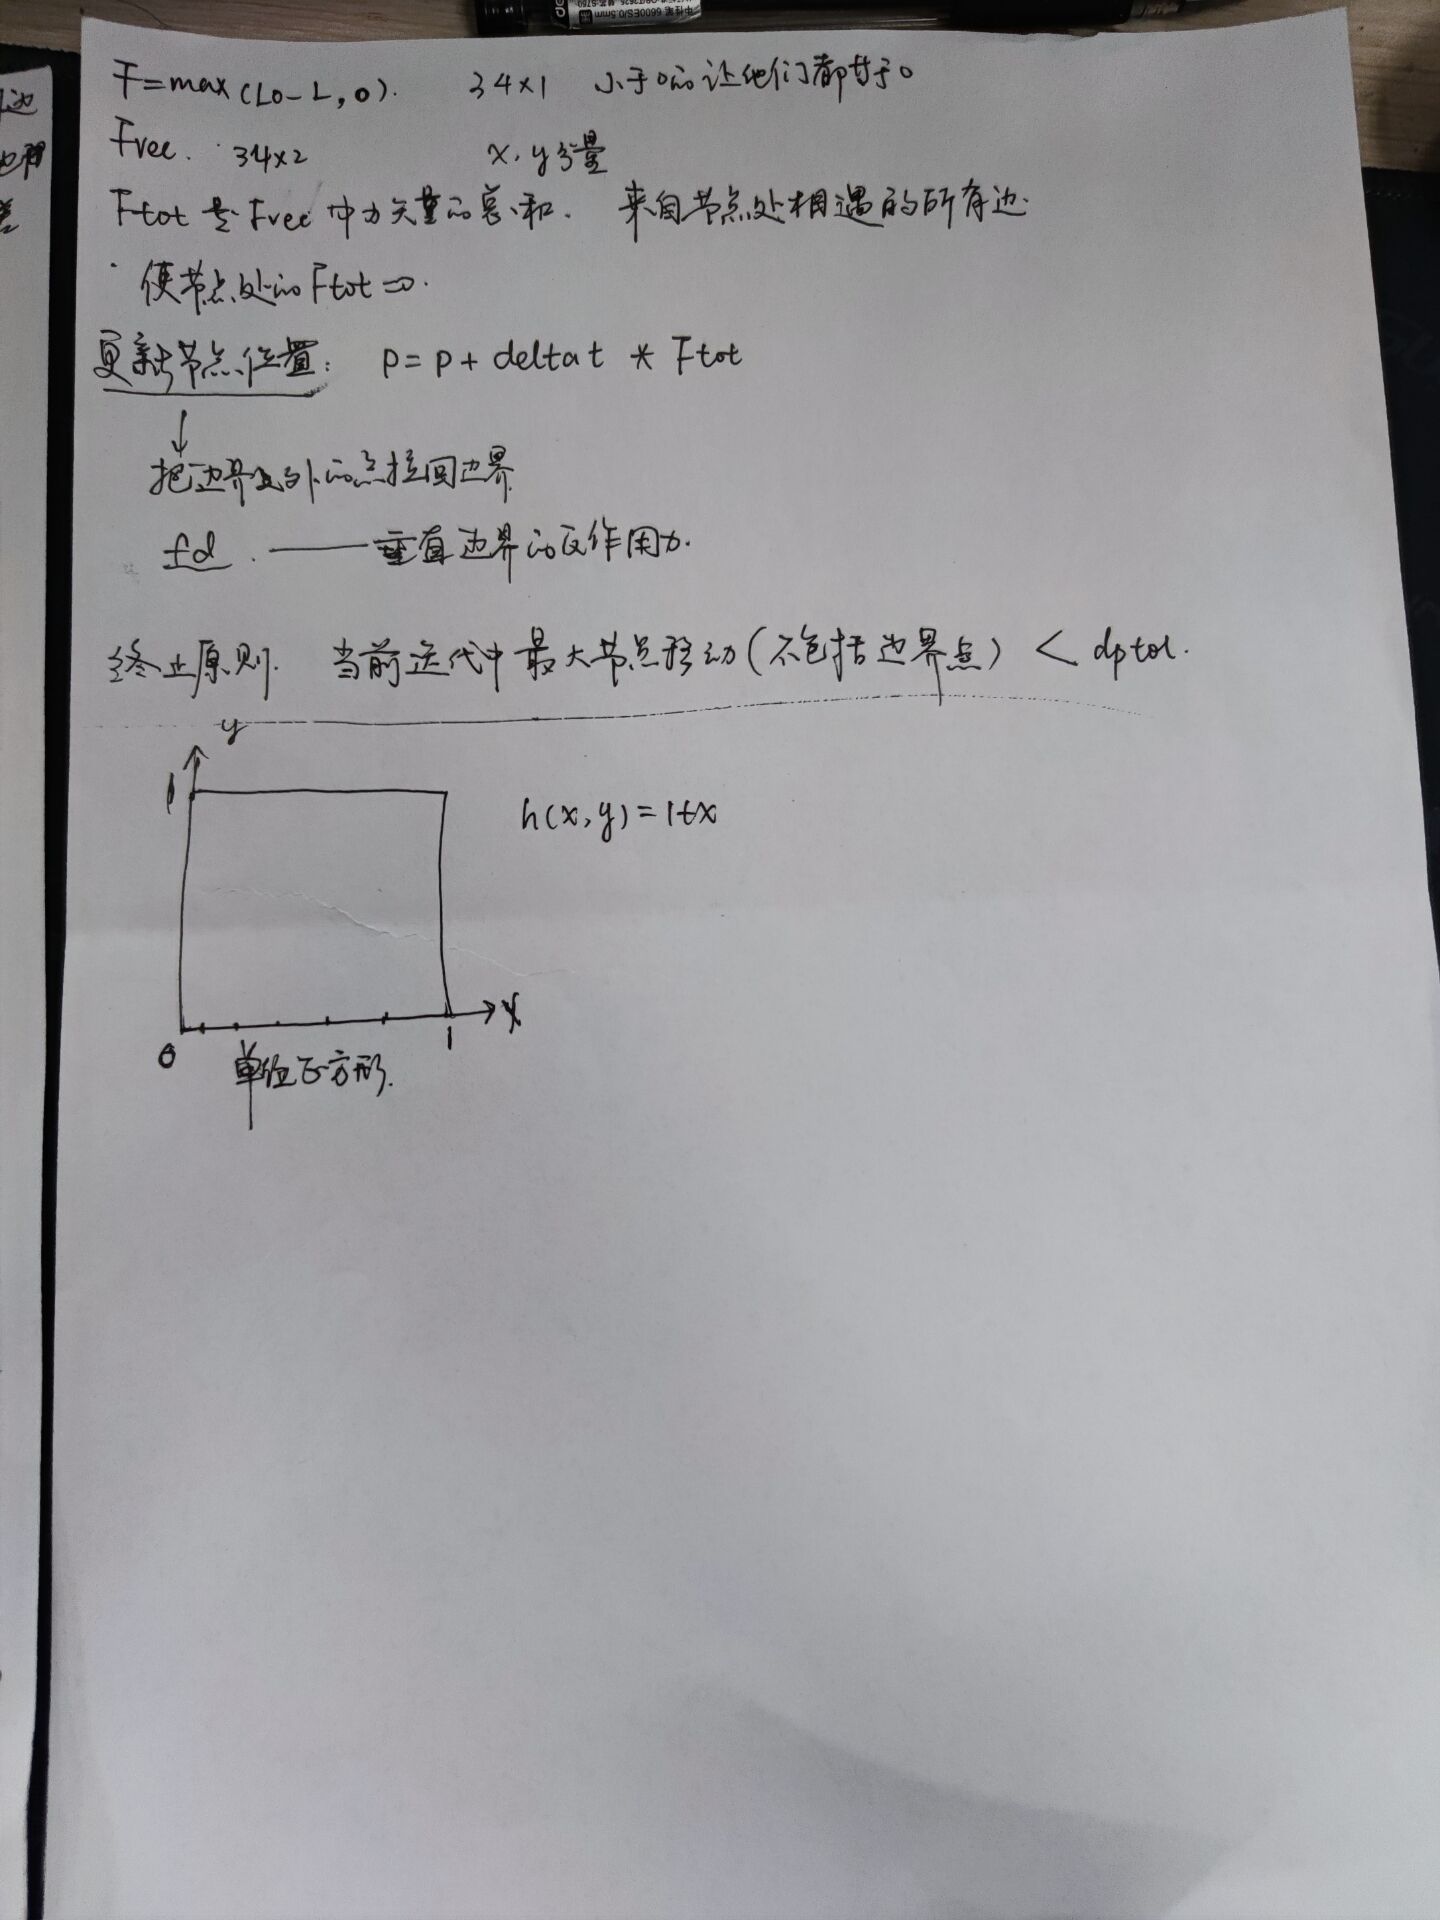 F=max(L0-L,0). 34×1 小于0的让他们都等于0
Fvec. 34×2 x,y分量
Ftot是Fvec中力矢量的总和. 来自节点处相遇的所有边
使节点处的Ftot=0.
更新节点位置: p=p+deltat * Ftot
↓
把边界之外的点拉回边界
fd. ——垂直边界的反作用力.
终止原则. 当前迭代中最大节点移动(不包括边界点) < dptol.
y
1
h(x,y)=1+x
0 1 x
单位正方形.